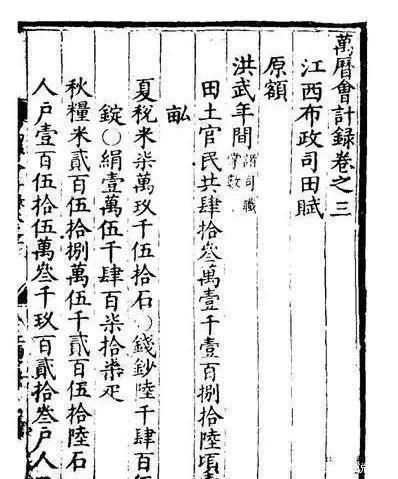 萬曆會計録卷之三
江西布政司田賦
原額
洪武年間 諸司職掌數
田土官民共肆拾叁萬壹千壹百捌拾陸頃
畝
夏税米柒萬玖千伍拾石○錢鈔陸千肆百
錠○絹壹萬伍千肆百柒拾柒疋
秋糧米貳百伍拾捌萬伍千貳百伍拾陸石
人户壹百伍拾伍萬叁千玖百貳拾叁户人